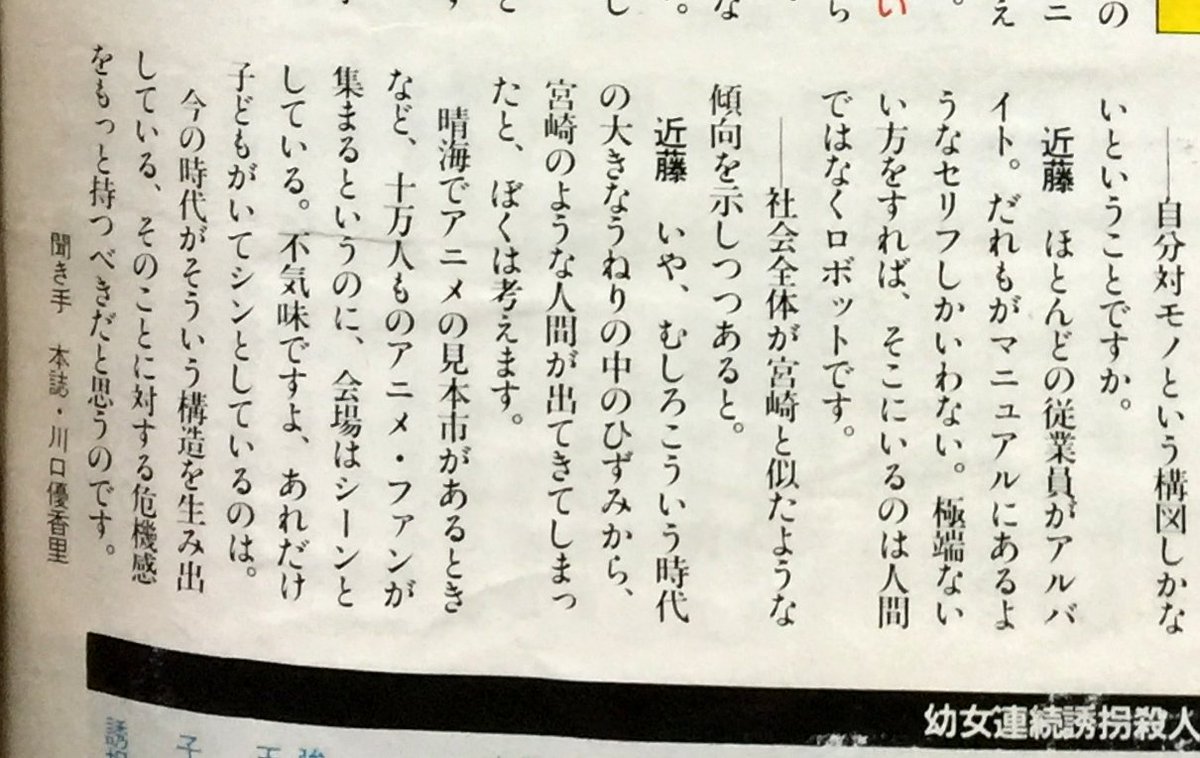 ――自分対モノという構図しかな
いということですか。
近藤　ほとんどの従業員がアルバ
イト。だれもがマニュアルにあるよ
うなセリフしかいわない。極端ない
い方をすれば、そこにいるのは人間
ではなくロボットです。
――社会全体が宮崎と似たような
傾向を示しつつあると。
近藤　いや、むしろこういう時代
の大きなうねりの中のひずみから、
宮崎のような人間が出てきてしまっ
たと、ぼくは考えます。
晴海でアニメの見本市があるとき
など、十万人ものアニメ・ファンが
集まるというのに、会場はシーンと
している。不気味ですよ、あれだけ
子どもがいてシンとしているのは。
今の時代がそういう構造を生み出
している、そのことに対する危機感
をもっと持つべきだと思うのです。
聞き手　本誌・川口優香里
幼女連続誘拐殺人